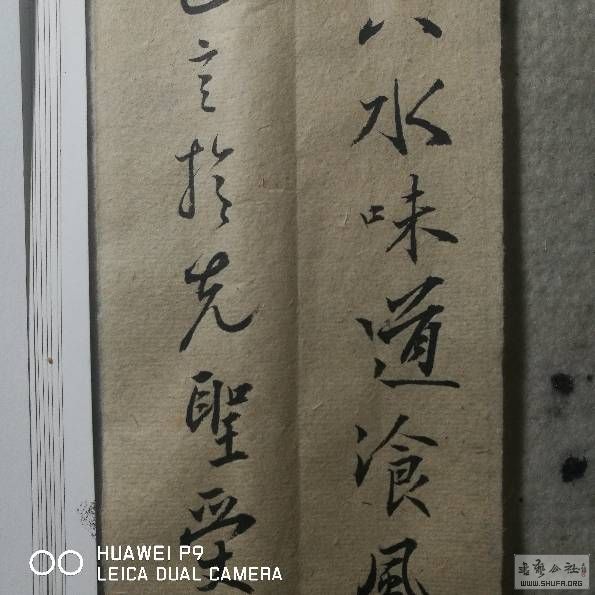 八水味道湌風
言於先聖受
HUAWEI P9
LEICA DUAL CAMERA
WWW.SHUFA.ORG